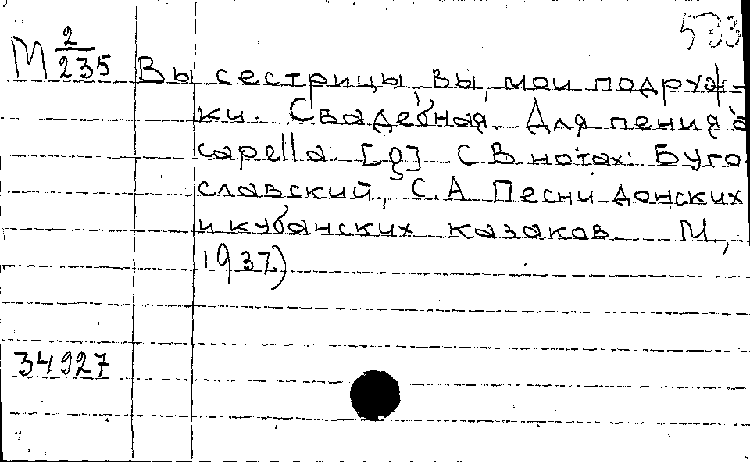 533
М 2/235 Вы сестрицы, вы, мои подруж-
ки. Свадебная. Для пения a
capella [g] (В нотах: Буго
славский, С.А Песни донских
и кубанских казаков М,
1937)
34927